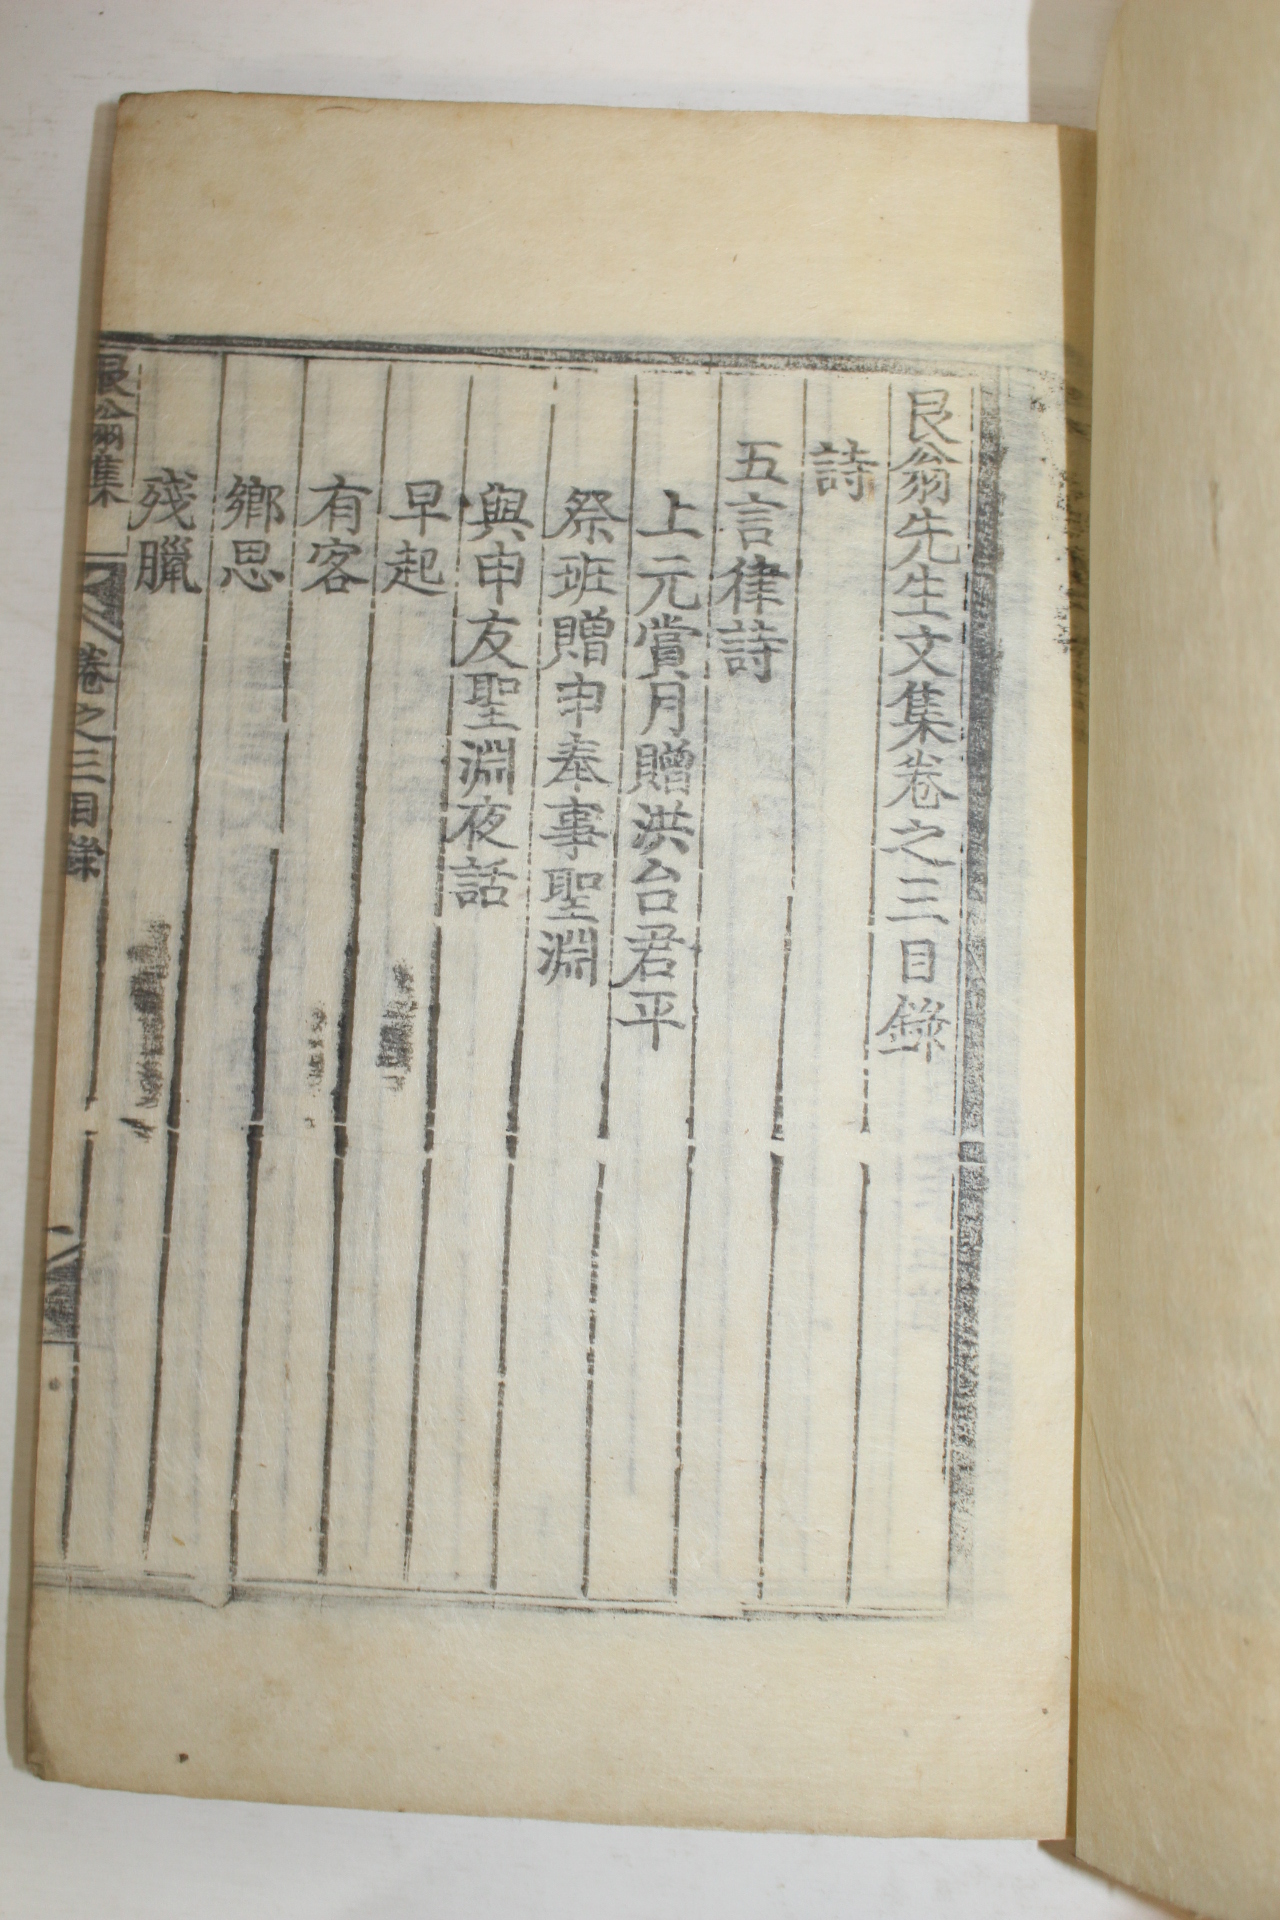 艮翁先生文集卷之三目錄
詩
五言律詩
上元賞月贈洪台君平
祭班贈申奉事聖淵
與申友聖淵夜話
早起
有客
鄉思
殘臘
艮翁集 卷之三目錄